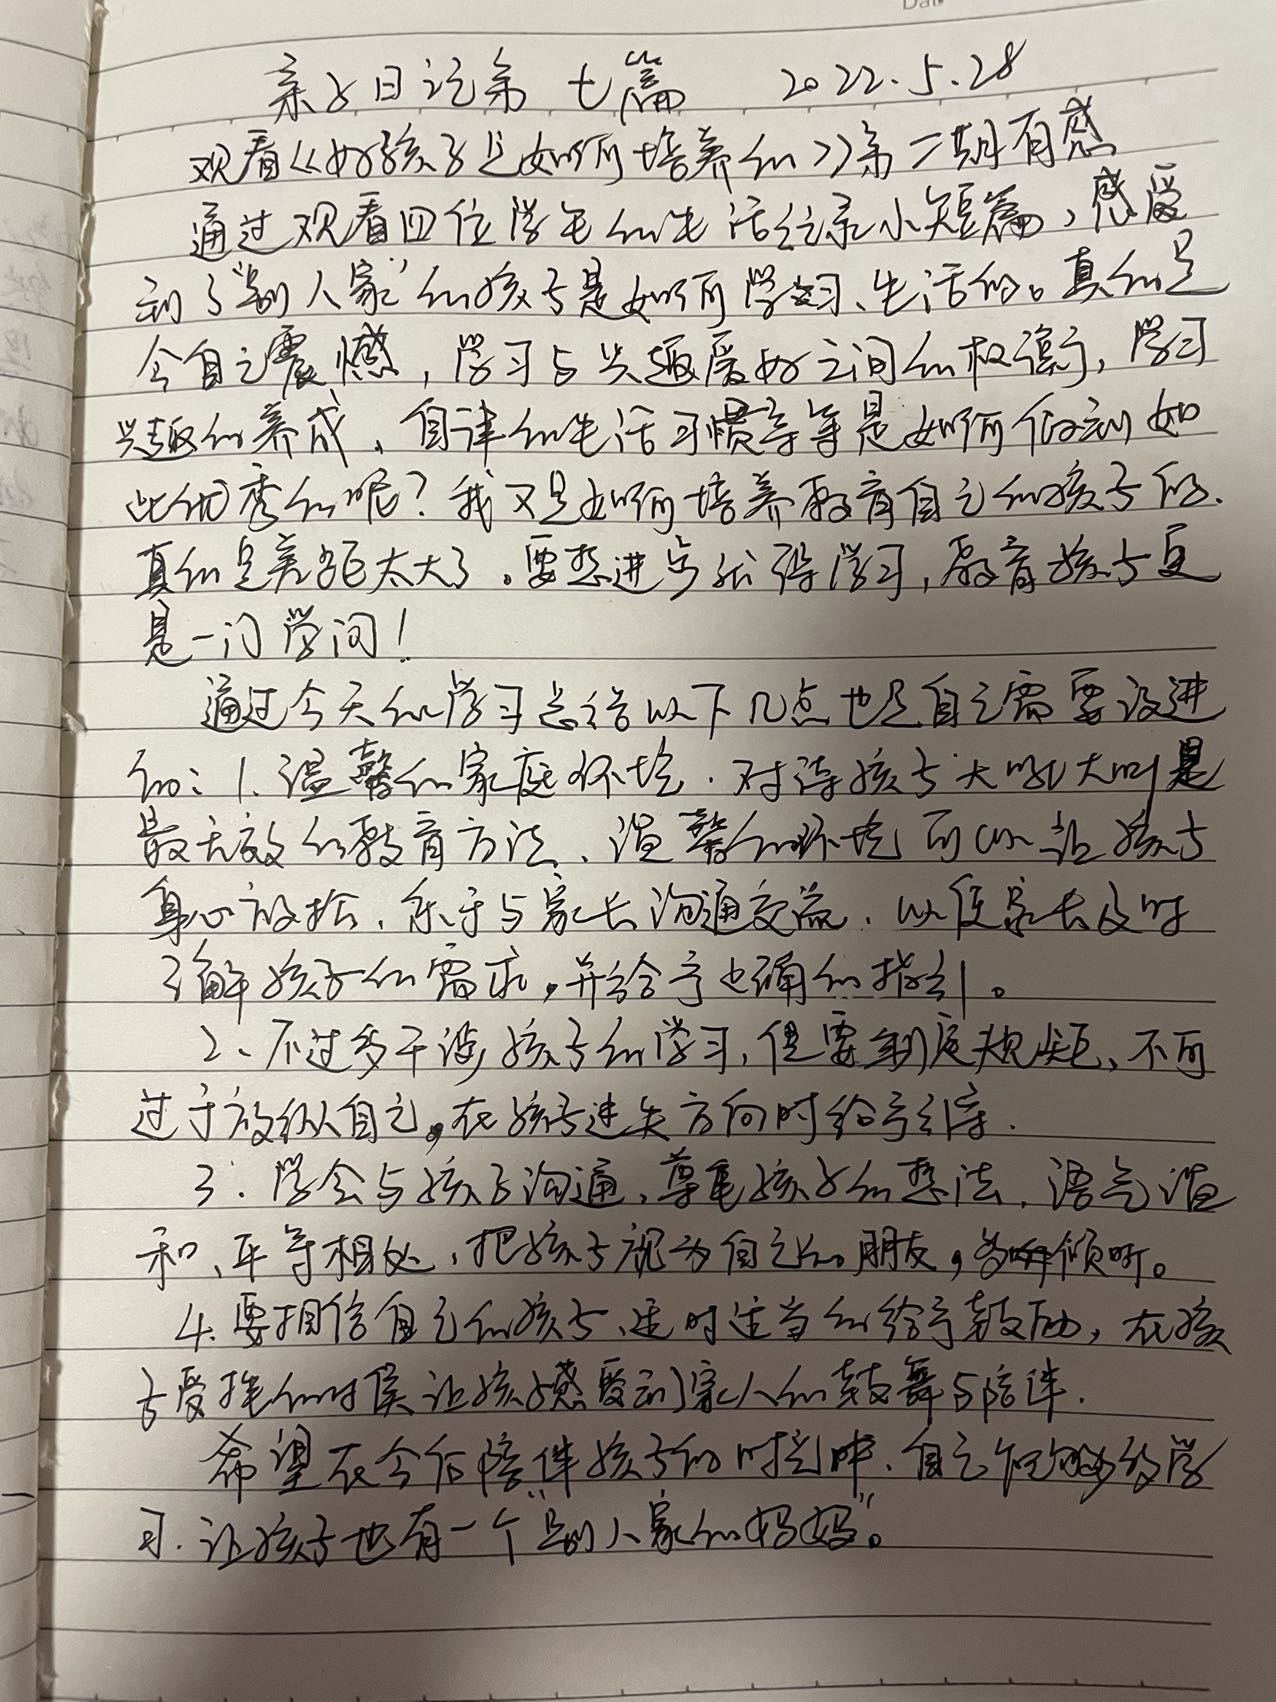 亲子日记第七篇 2022.5.28
观看《好孩子是如何培养的》第二期有感
通过观看四位学生的生活纪录小短篇,感受
到了“别人家”的孩子是如何学习、生活的。真的是
令自己震憾,学习与兴趣爱好之间的权衡,学习
兴趣的养成、自律的生活习惯等等是如何做到如
此优秀的呢?我又是如何培养教育自己的孩子的.
真的是差距太大了。要想进步就得学习,教育孩子更
是一门学问!
通过今天的学习总结以下几点也是自己需要改进
的:1.温馨的家庭环境.对待孩子大吼大叫是
最无效的教育方法、温馨的环境可以让孩子
身心放松.乐于与家长沟通交流.以便家长及时
了解孩子的需求,并给予正确的指引。
2、不过多干涉孩子的学习,但要制定规矩,不可
过于放纵自己,在孩子迷失方向时给予引导.
3.学会与孩子沟通、尊重孩子的想法.语气温
和、平等相处,把孩子视为自己的朋友,倾听。
4.要相信自己的孩子、适时适当的给予鼓励,在孩
子受挫的时候让孩子感受到家人的鼓舞与陪伴.
希望在今后陪伴孩子的时光中.自己能够多学
习.让孩子也有一个“别人家的妈妈”。